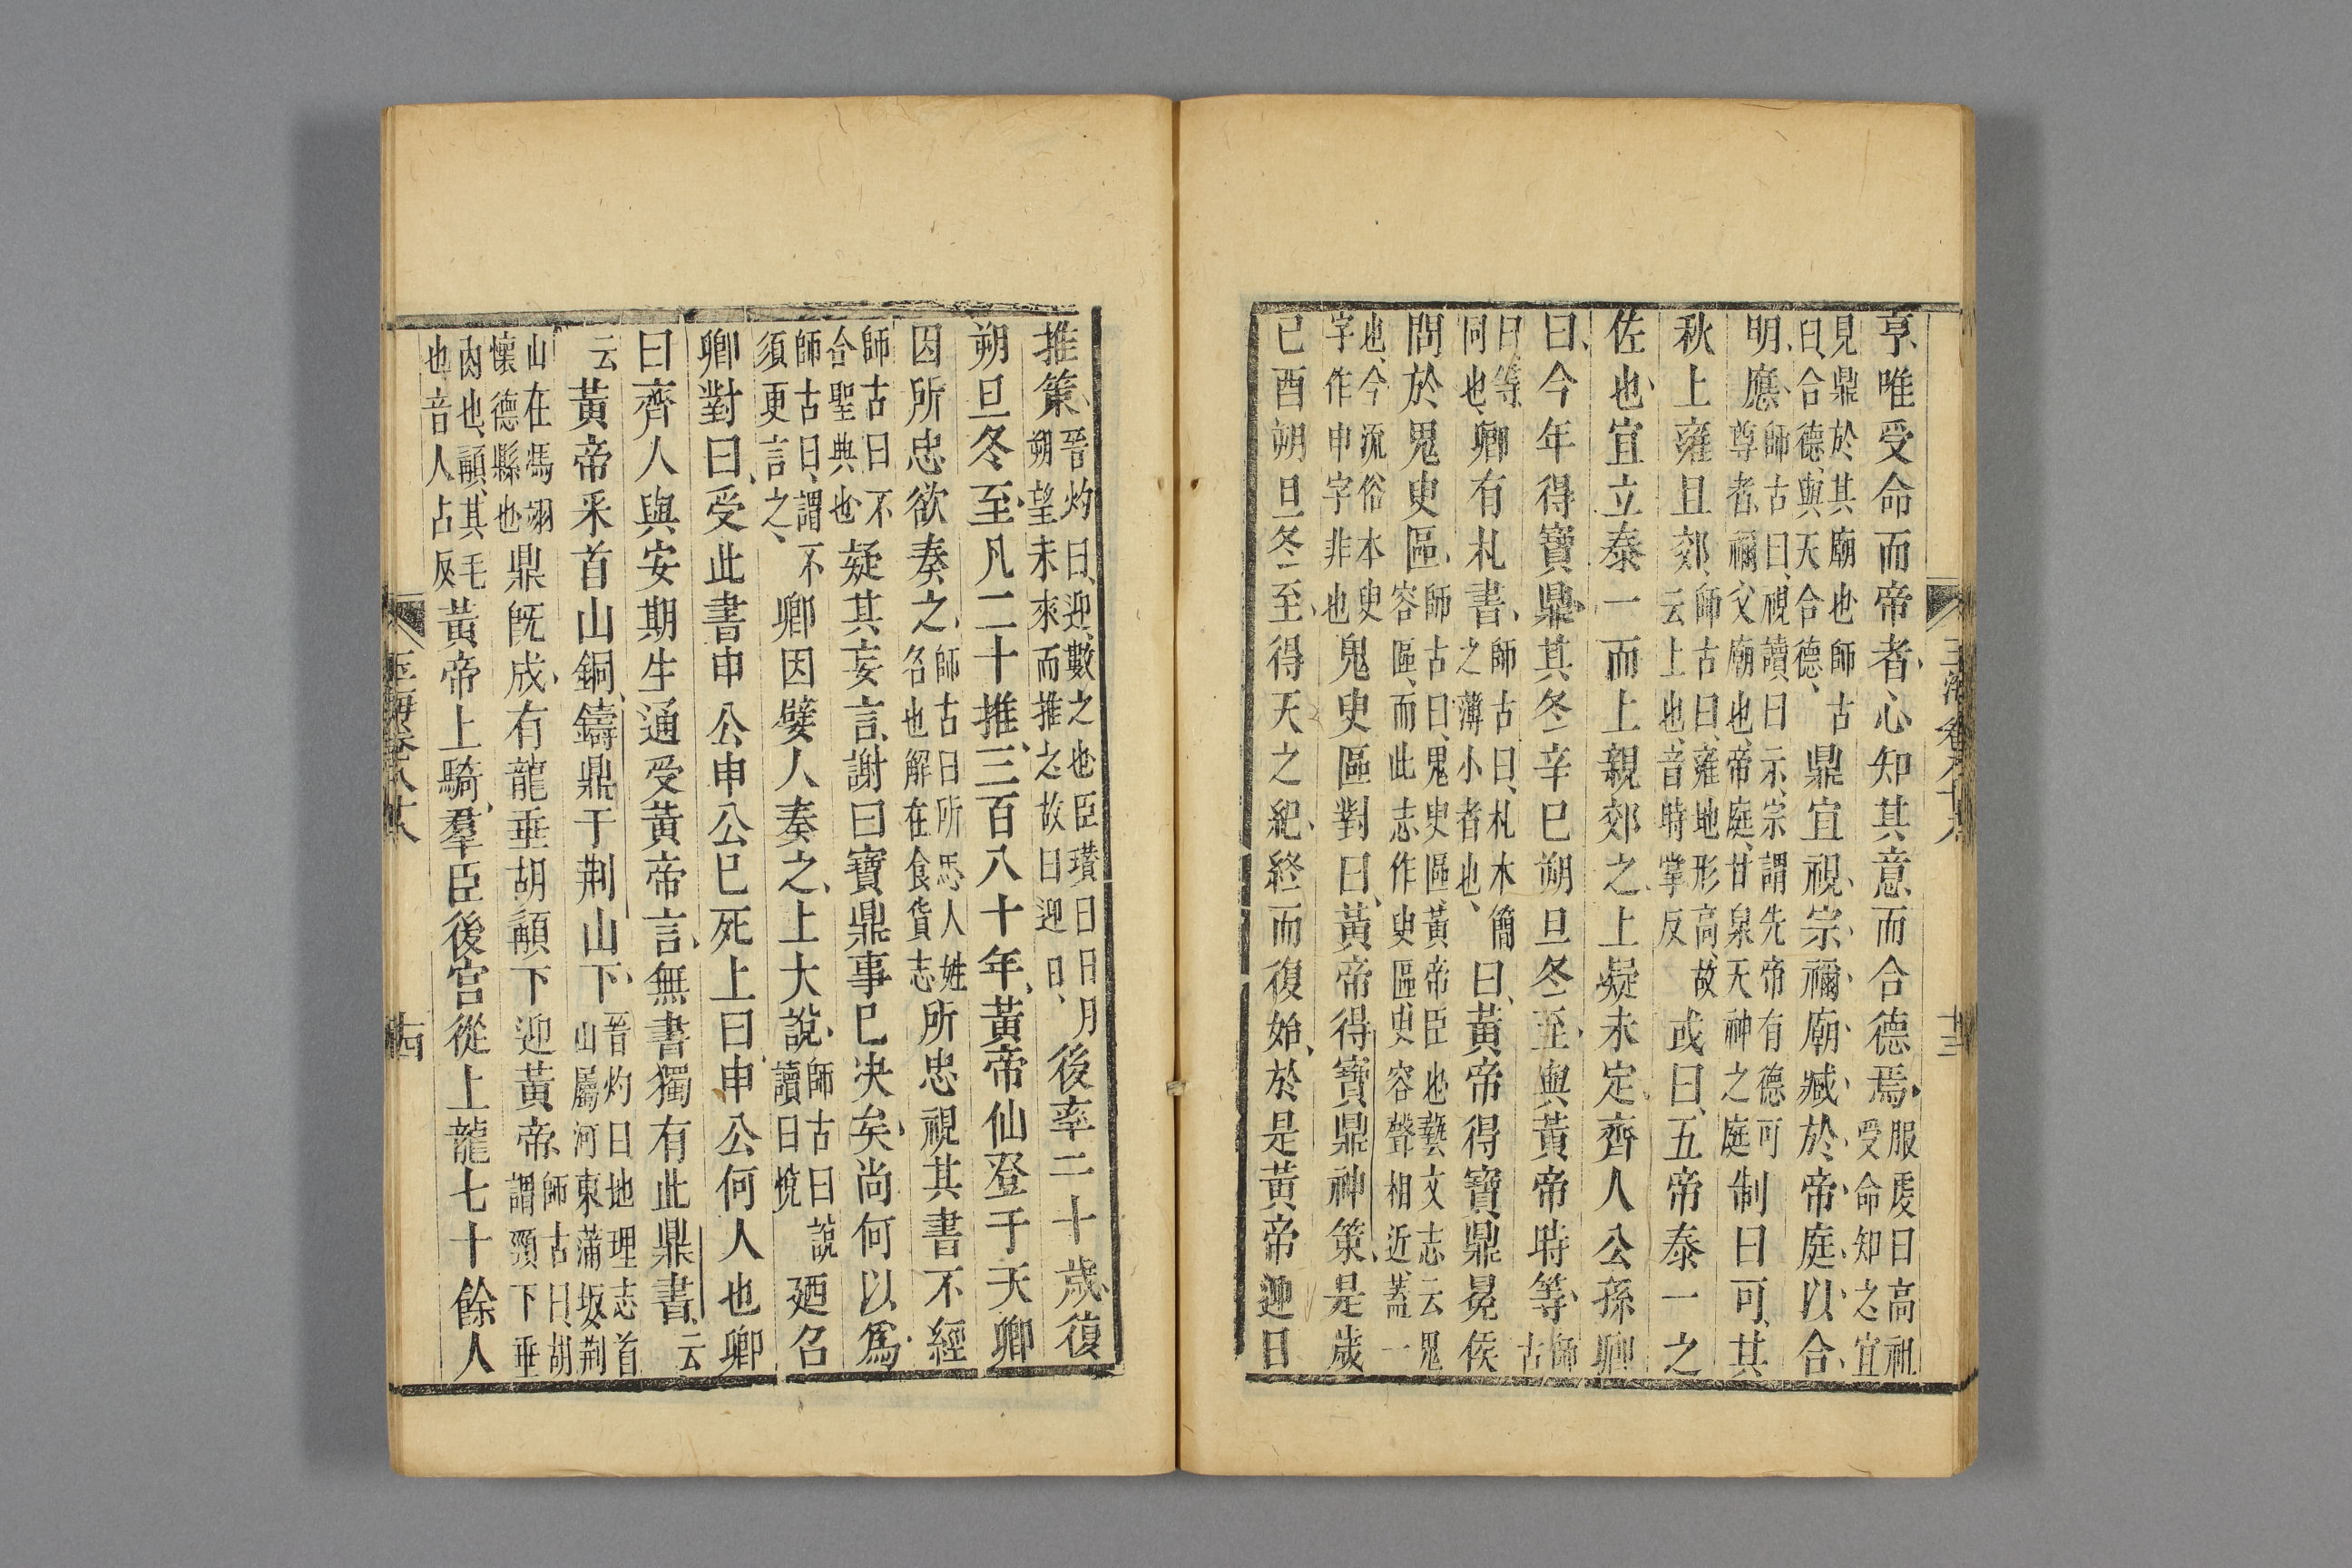 亨唯受命而帝者心知其意而合德焉服虔曰高祖受命知之宜
見鼎於其廟也師古曰合德與天合德鼎宜視宗禰廟臧於帝庭以合
明應師古曰視讀曰示宗謂先帝有德可尊者禰父廟也帝庭甘泉天神之庭制曰可其
秋上雍且郊師古曰雍地形高故云上也音時掌反或曰五帝泰一之
佐也宜立泰一而上親郊之上疑未定齊人公孫卿
曰今年得寶鼎其冬辛巳朔旦冬至與黃帝時等師古
曰等同也卿有札書師古曰札木簡之薄小者也曰黃帝得寶鼎冕侯
問於鬼臾區師古曰鬼臾區黃帝臣也藝文志云鬼容區而此志作臾區臾容聲相近蓋一
也今流俗本臾字作申字非也鬼臾區對曰黃帝得寶鼎神策是歲
已酉朔旦冬至得天之紀終而復始於是黃帝迎日
推策晉灼曰迎數之也臣瓚曰日月朔望未來而推之故曰迎日後率二十歲復
朔旦冬至凡二十推三百八十年黃帝仙登于天卿
因所忠欲奏之師古曰所忠人姓名也解在食貨志所忠視其書不經
師古曰不合聖典也疑其妄言謝曰寶鼎事已決矣尚何以爲
師古曰謂不須更言之卿因嬖人奏之上大說師古曰說讀曰悅廼召
卿對曰受此書申公申公已死上曰申公何人也卿
曰齊人與安期生通受黃帝言無書獨有此鼎書云
云黃帝采首山銅鑄鼎于荆山下晉灼曰地理志首山屬河東蒲坂荆
山在馮翊懷德縣也鼎旣成有龍垂胡䫇下迎黃帝師古曰胡謂頸下垂
肉也䫇其毛也音人占反黃帝上騎羣臣後宮從上龍七十餘人
十三
十四